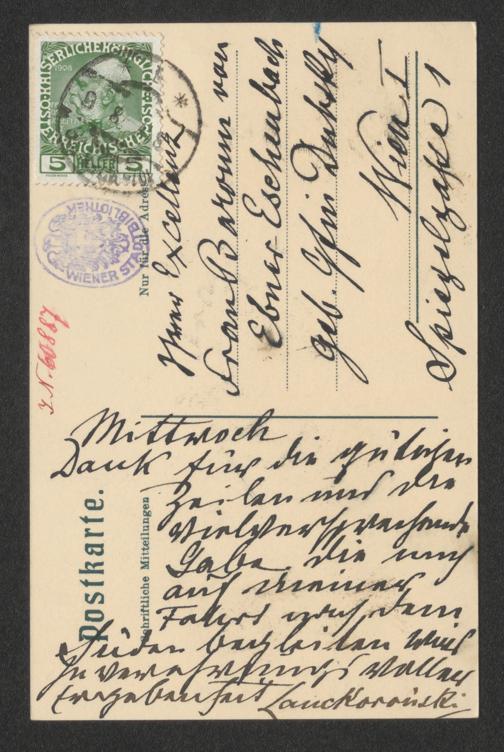 Postkarte.
Schriftliche Mitteilungen
Nur für die Adresse
KAISERLICHE KÖNIGLICHE
ÖSTERREICHISCHE POST
1908
5 HELLER 5
WIENER STADTBIBLIOTHEK
I. N. 60887
Ihrer Excellenz
Frau Baronin von
Ebner Eschenbach
geb. Gfin Dubsky
Wien I
Spiegelgasse 1
Mittwoch
Dank für die gütigen
Zeilen und die
vielversprechende
Gabe, die mich
auf meiner
Fahrt nach dem
Süden begleiten wird
In verehrungsvoller
Ergebenheit Lanckoroński